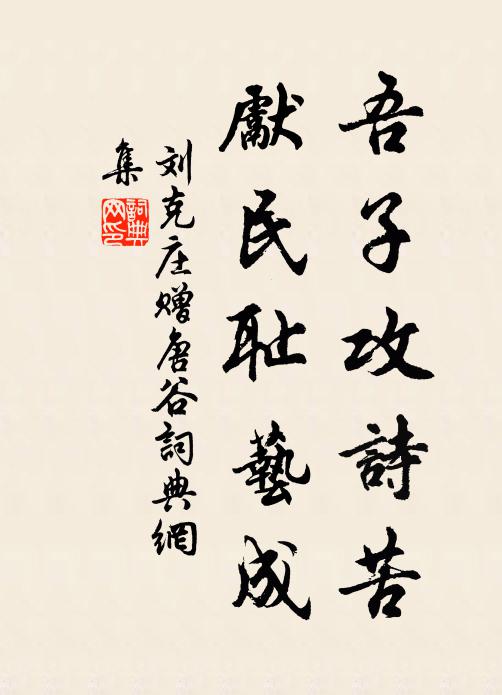 吾子攻詩苦
獻民耻藝成
刘克庄赠唐谷詞典網
集
詞典網印